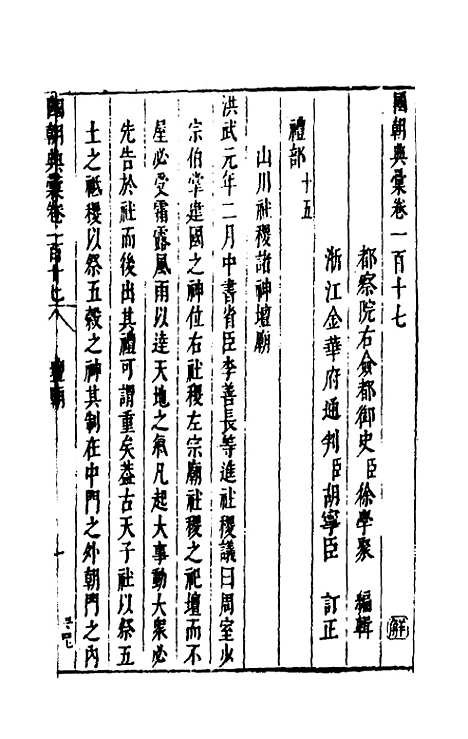 國朝典彙卷一百十七
都察院右僉都御史臣徐學聚 編輯
浙江金華府通判臣胡寧臣 訂正
禮部十五
山川社稷諸神壇廟
洪武元年二月中書省臣李善長等進社稷議曰周室少
宗伯掌建國之神位右社稷左宗廟社稷之祀壇而不
屋必受霜露風雨以達天地之氣凡起大事動大衆必
先告於社而後出其禮可謂重矣葢古天子社以祭五
土之祗稷以祭五穀之神其制在中門之外朝門之內
國朝典彙卷一百十七 壇廟 一